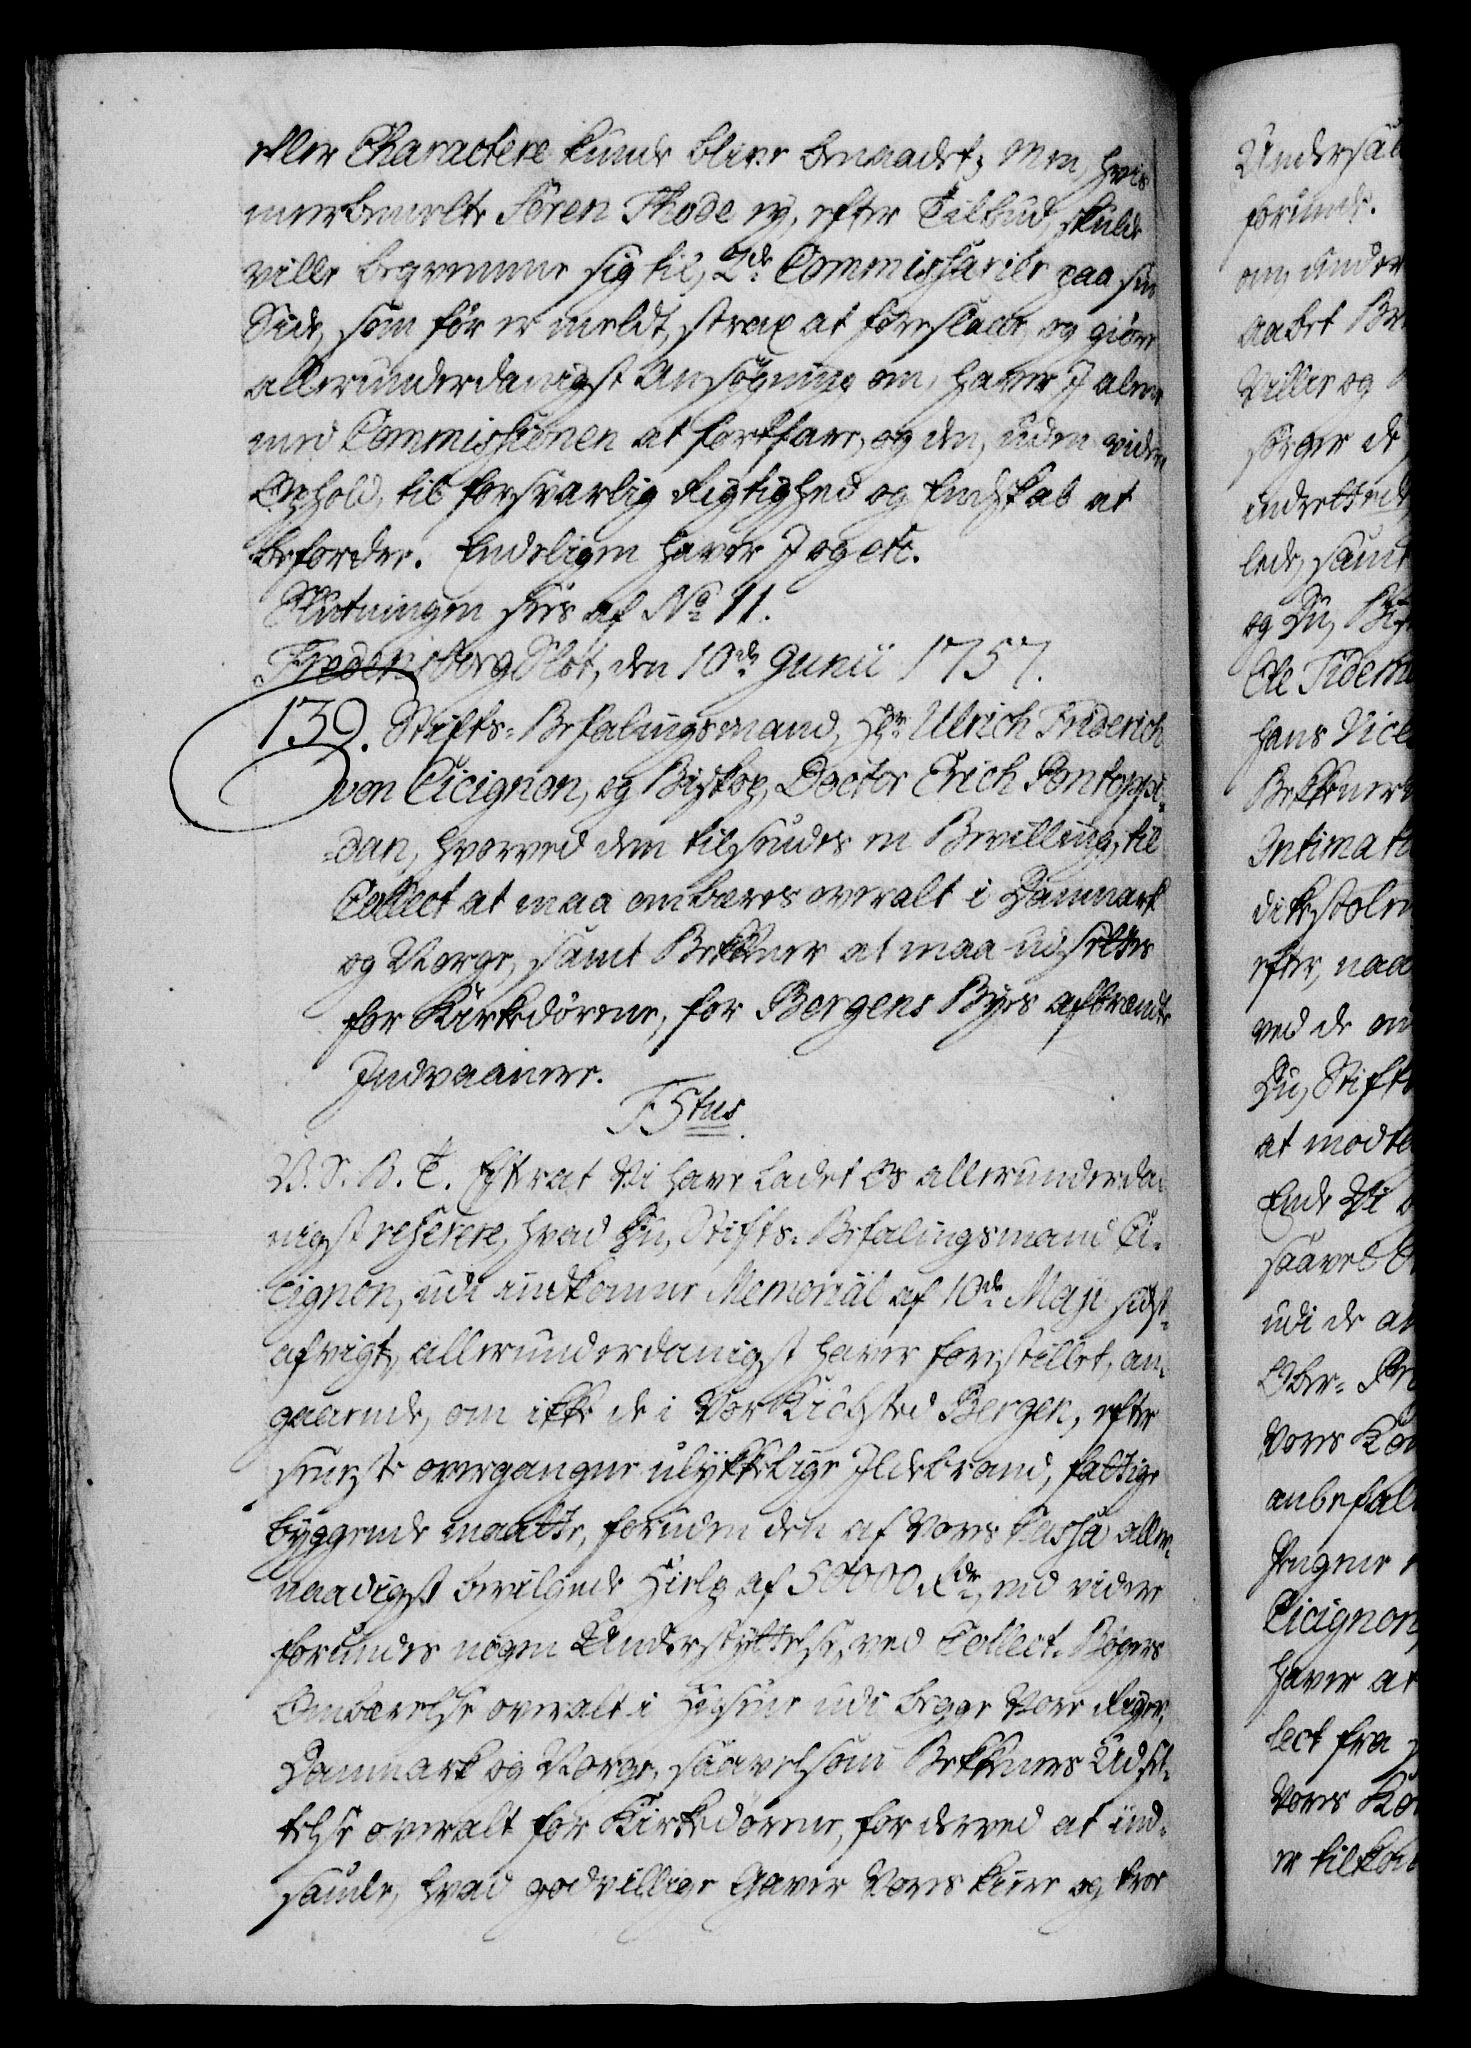 eller Charactere kunde blive benaadet; Men, hvis
merbemelte Sören Thode ey, efter Tilbud, skulde
ville beqvemme sig til, 2de Commissarier paa sin
Side, som før er meldt, strax at foreslaae, og giøre
allerunderdanigst Ansøgning om, haver I alene
med Commissionen at fortfare, og den, uden videre
Ophold, til forsvarlig Rigtighed og Endskab at
befordre. Endeligen haver I og etc.
Slutningen sees af No 11.
Fredensborg Slot, den 10de Junii 1757.
139. Stifts-Befalingsmand, Hr Ulrich Friderich
von Cicignon, og Biskop, Doctor Erich Pontoppi-
dan, hvorved dem tilsendes en Bevilling, til
Collect at maa ombæres overalt i Danmark
og Norge, samt Bekkner at maa udsettes
for Kirkedörene, for Bergens Byes afbrændte
Indvaanere.
F5tus
V. S. B. T. Eftersom Vi have ladet Os allerunderda-
nigst referere, hvad Du, Stifts-Befalingsmand Ci-
cignon, udi indkomne Memorial af 10de Maji sidst-
afvigt, allerunderdanigst haver forestillet, an-
gaaende, om ikke de i Vor Kiøbsted Bergen, efter
seneste overgangne ulykkelige Ildebrand, fattige
byggende maatte, foruden den af Vores Cassa aller-
naadigst bevilgede Hielp af 50000 Rdr, end videre
forundes nogen Understyttelse, ved Collect-Bøgers
Ombærelse overalt i Husene udi begge Vore Riger,
Danmark og Norge, saavelsom Bekkeners Udset-
telse overalt for Kirkedörene, for derved at ind-
samle, hvad godvillige Gaver Vores kiere og troe